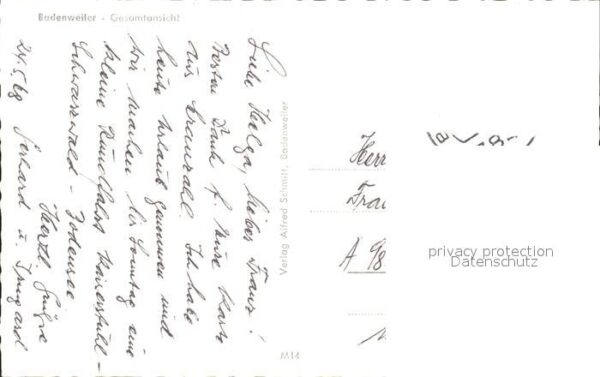 Badenweiler - Gesamtansicht
Liebe Helga, lieber Franz!
Besten Dank f. Eure Karte
aus Kranzahl. Ich habe
heute Urlaub genommen und
wir machen bis Sonntag eine
kleine Rundfahrt Kaiserstuhl -
Schwarzwald - Bodensee
Herzl. Grüße
24.5.68 Gerhard u. Irmgard
Verlag Alfred Schmitt, Badenweiler
M14
Herr
Frau
A 98
privacy protection
Datenschutz